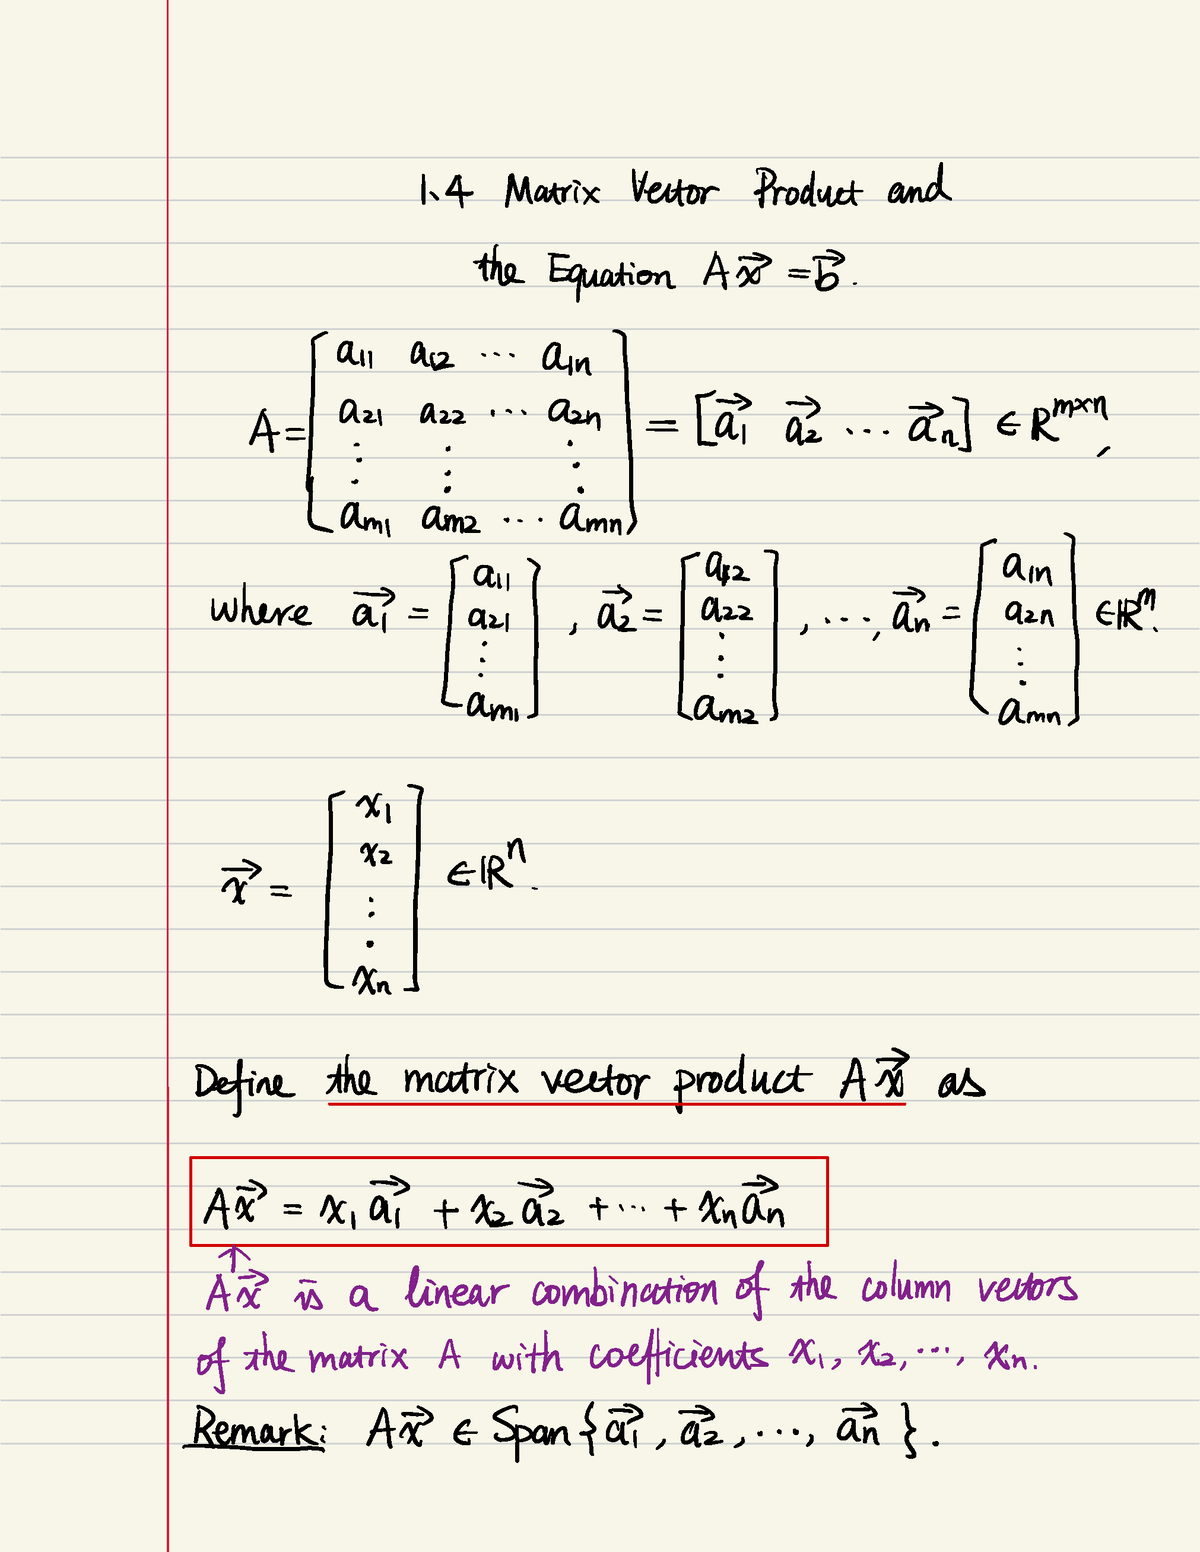 1.4 Matrix Vector Product and
the Equation A\vec{x} = \vec{b}.
A = \begin{bmatrix} a_{11} & a_{12} & \cdots & a_{1n} \\ a_{21} & a_{22} & \cdots & a_{2n} \\ \vdots & \vdots & & \vdots \\ a_{m1} & a_{m2} & \cdots & a_{mn} \end{bmatrix} = [\vec{a_1} \vec{a_2} \cdots \vec{a_n}] ∈ R^{m×n},
where \vec{a_1} = \begin{bmatrix} a_{11} \\ a_{21} \\ \vdots \\ a_{m1} \end{bmatrix}, \vec{a_2} = \begin{bmatrix} a_{12} \\ a_{22} \\ \vdots \\ a_{m2} \end{bmatrix}, \cdots, \vec{a_n} = \begin{bmatrix} a_{1n} \\ a_{2n} \\ \vdots \\ a_{mn} \end{bmatrix} ∈ ℝ^m.
\vec{x} = \begin{bmatrix} x_1 \\ x_2 \\ \vdots \\ x_n \end{bmatrix} ∈ ℝ^n.
Define the matrix vector product A\vec{x} as
A\vec{x} = x_1 \vec{a_1} + x_2 \vec{a_2} + \cdots + x_n \vec{a_n}
↑
A\vec{x} is a linear combination of the column vectors
of the matrix A with coefficients x_1, x_2, \cdots, x_n.
Remark: A\vec{x} ∈ Span{\vec{a_1}, \vec{a_2}, \cdots, \vec{a_n}}.